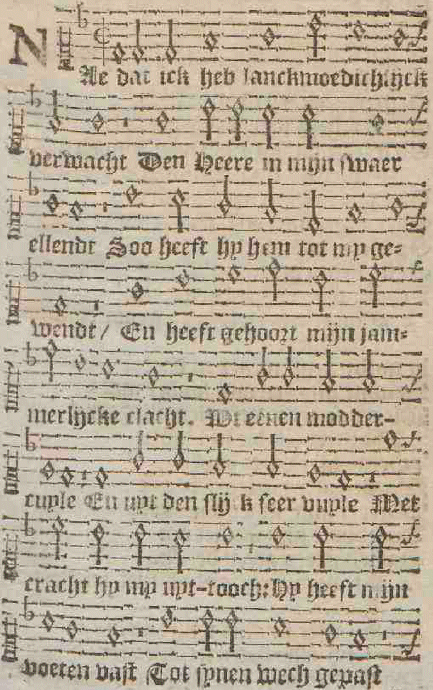 NAe dat ick heb lanckmoedichlijck
verwacht Den Heere in mijn swaer
ellendt Soo heeft hy hem tot my ge-
wendt/ En heeft gehoort mijn jam-
merlijcke clacht. Wt eenen modder-
cuyle En uyt den slijck seer vuyle Met
cracht hy my uyt-tooch: Hy heeft mijn
voeten vast Tot synen wech gepast